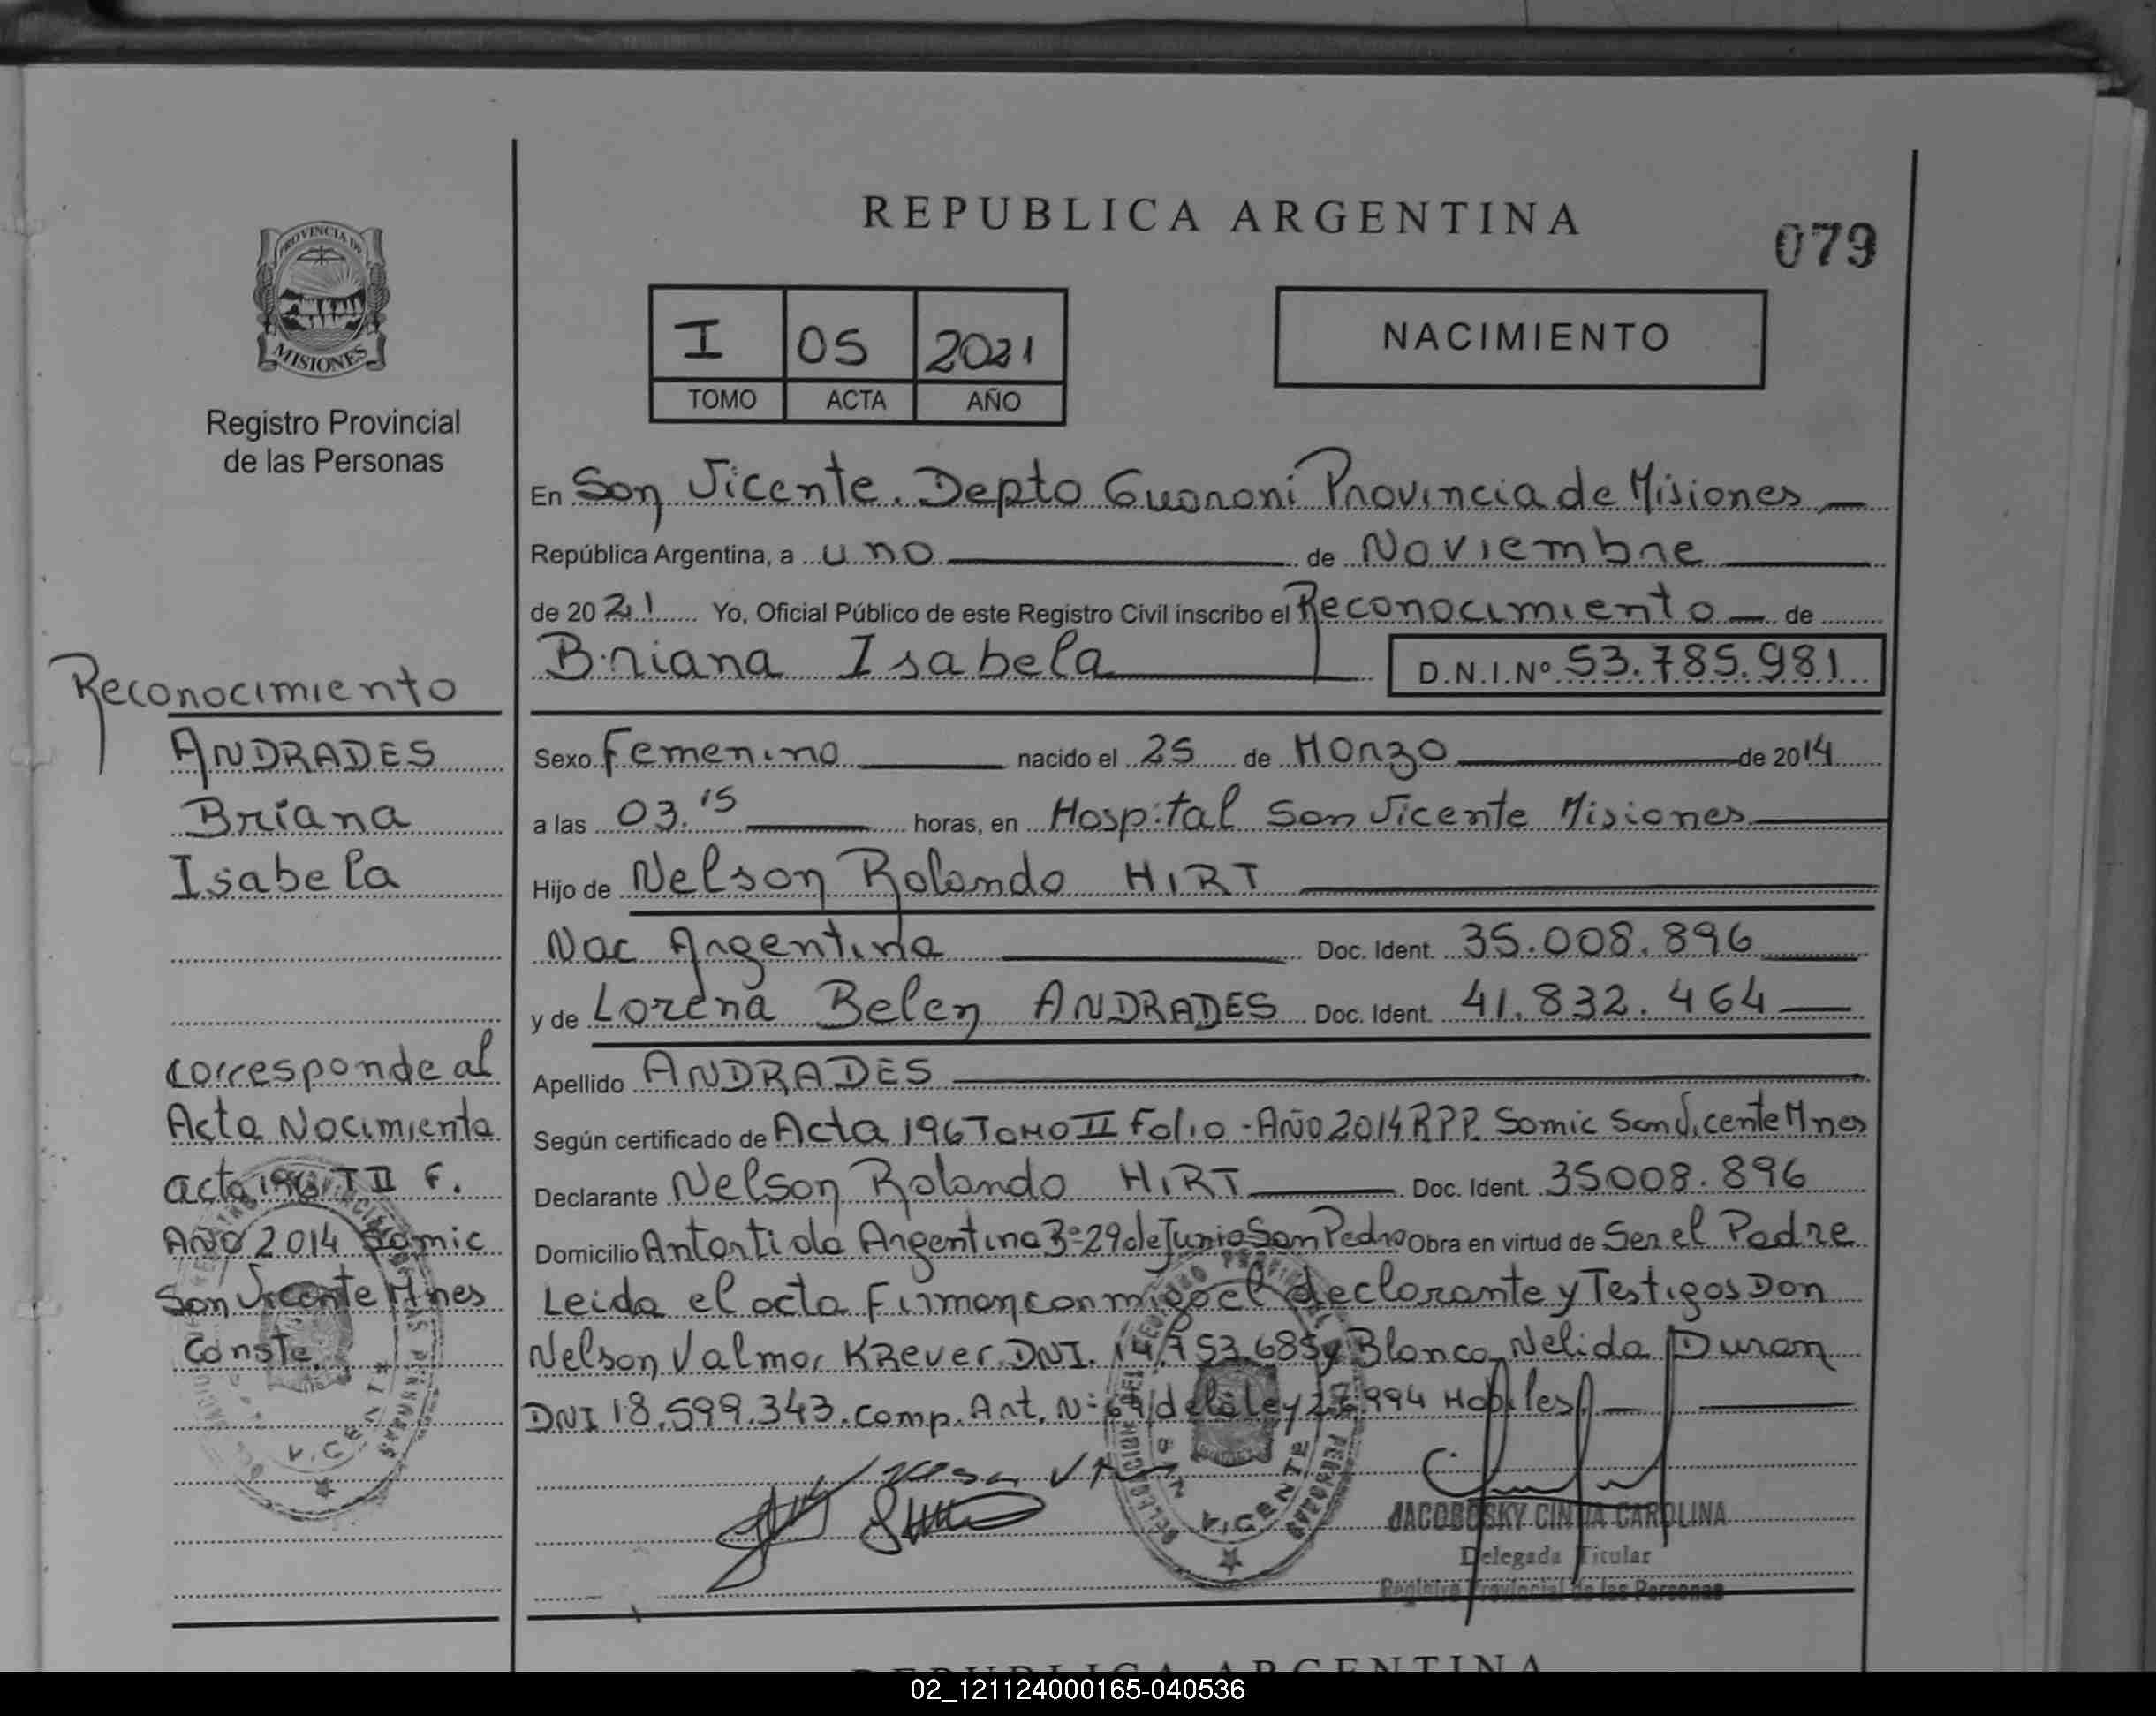 REPUBLICA ARGENTINA
079
PROVINCIA DE
MISIONES
Registro Provincial
de las Personas
I 05 2021
TOMO ACTA AÑO
NACIMIENTO
En San Vicente. Depto Guarani Provincia de Misiones
República Argentina, a uno de Noviembre
de 2021 Yo, Oficial Público de este Registro Civil inscribo el Reconocimiento de
Briana Isabela D.N.I.Nº 53.785.981
Sexo Femenino nacido el 25 de Marzo de 2014
a las 03.15 horas, en Hospital San Vicente Misiones
Hijo de Nelson Rolando HIRT
Nac Argentina Doc. Ident. 35.008.896
y de Lorena Belen ANDRADES Doc. Ident. 41.832.464
Apellido ANDRADES
Según certificado de Acta 196 Tomo II Folio - Año 2014 RPP. Samic San Vicente Mnes
Declarante Nelson Rolando HIRT Doc. Ident. 35008.896
Domicilio Antartida Argentina Bº 29 de Junio San Pedro Obra en virtud de Ser el Padre
Leida el acta Firman conmigo el declarante y Testigos Don
Nelson Valmor KRever DNI. 14.753.685 y Blanca Nelida Duran
DNI 18.599.343. Comp. Art. Nº 64 de la ley 26.994 Habiles
JACOBOSKY CINTIA CAROLINA
Delegada Titular
Registro Provincial de las Personas
Reconocimiento
ANDRADES
Briana
Isabela
corresponde al
Acta Nacimiento
acta 196 T II F.
Año 2014 Samic
San Vicente Mnes
Conste.
REPUBLICA ARGENTINA
02_121124000165-040536